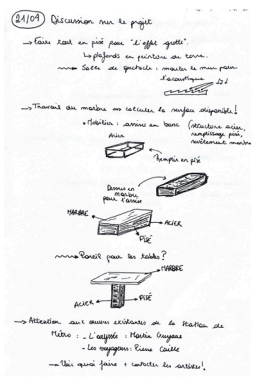 21/09 Discussion sur le projet
→ Faire tout en pisé pour "l'effet grotte".
↳ plafonds en peinture de terre.
Salle de spectacle : monter le mur pour
l'acoustique
→ Travail du marbre => calculer la surface disponible !
• Mobilier : assise en banc (structure acier,
remplissage pisé,
revêtement marbre
Acier
Remplir en pisé
Dessus en
marbre
pour l'assise
MARBRE
ACIER
PISÉ
Pareil pour les tables ?
MARBRE
ACIER
PISÉ
→ Attention aux œuvres existantes de la station de
Métro : - L'odyssée :
- Les voyageurs : Pierre Caille
→ Voir quoi faire + contacter les artistes !